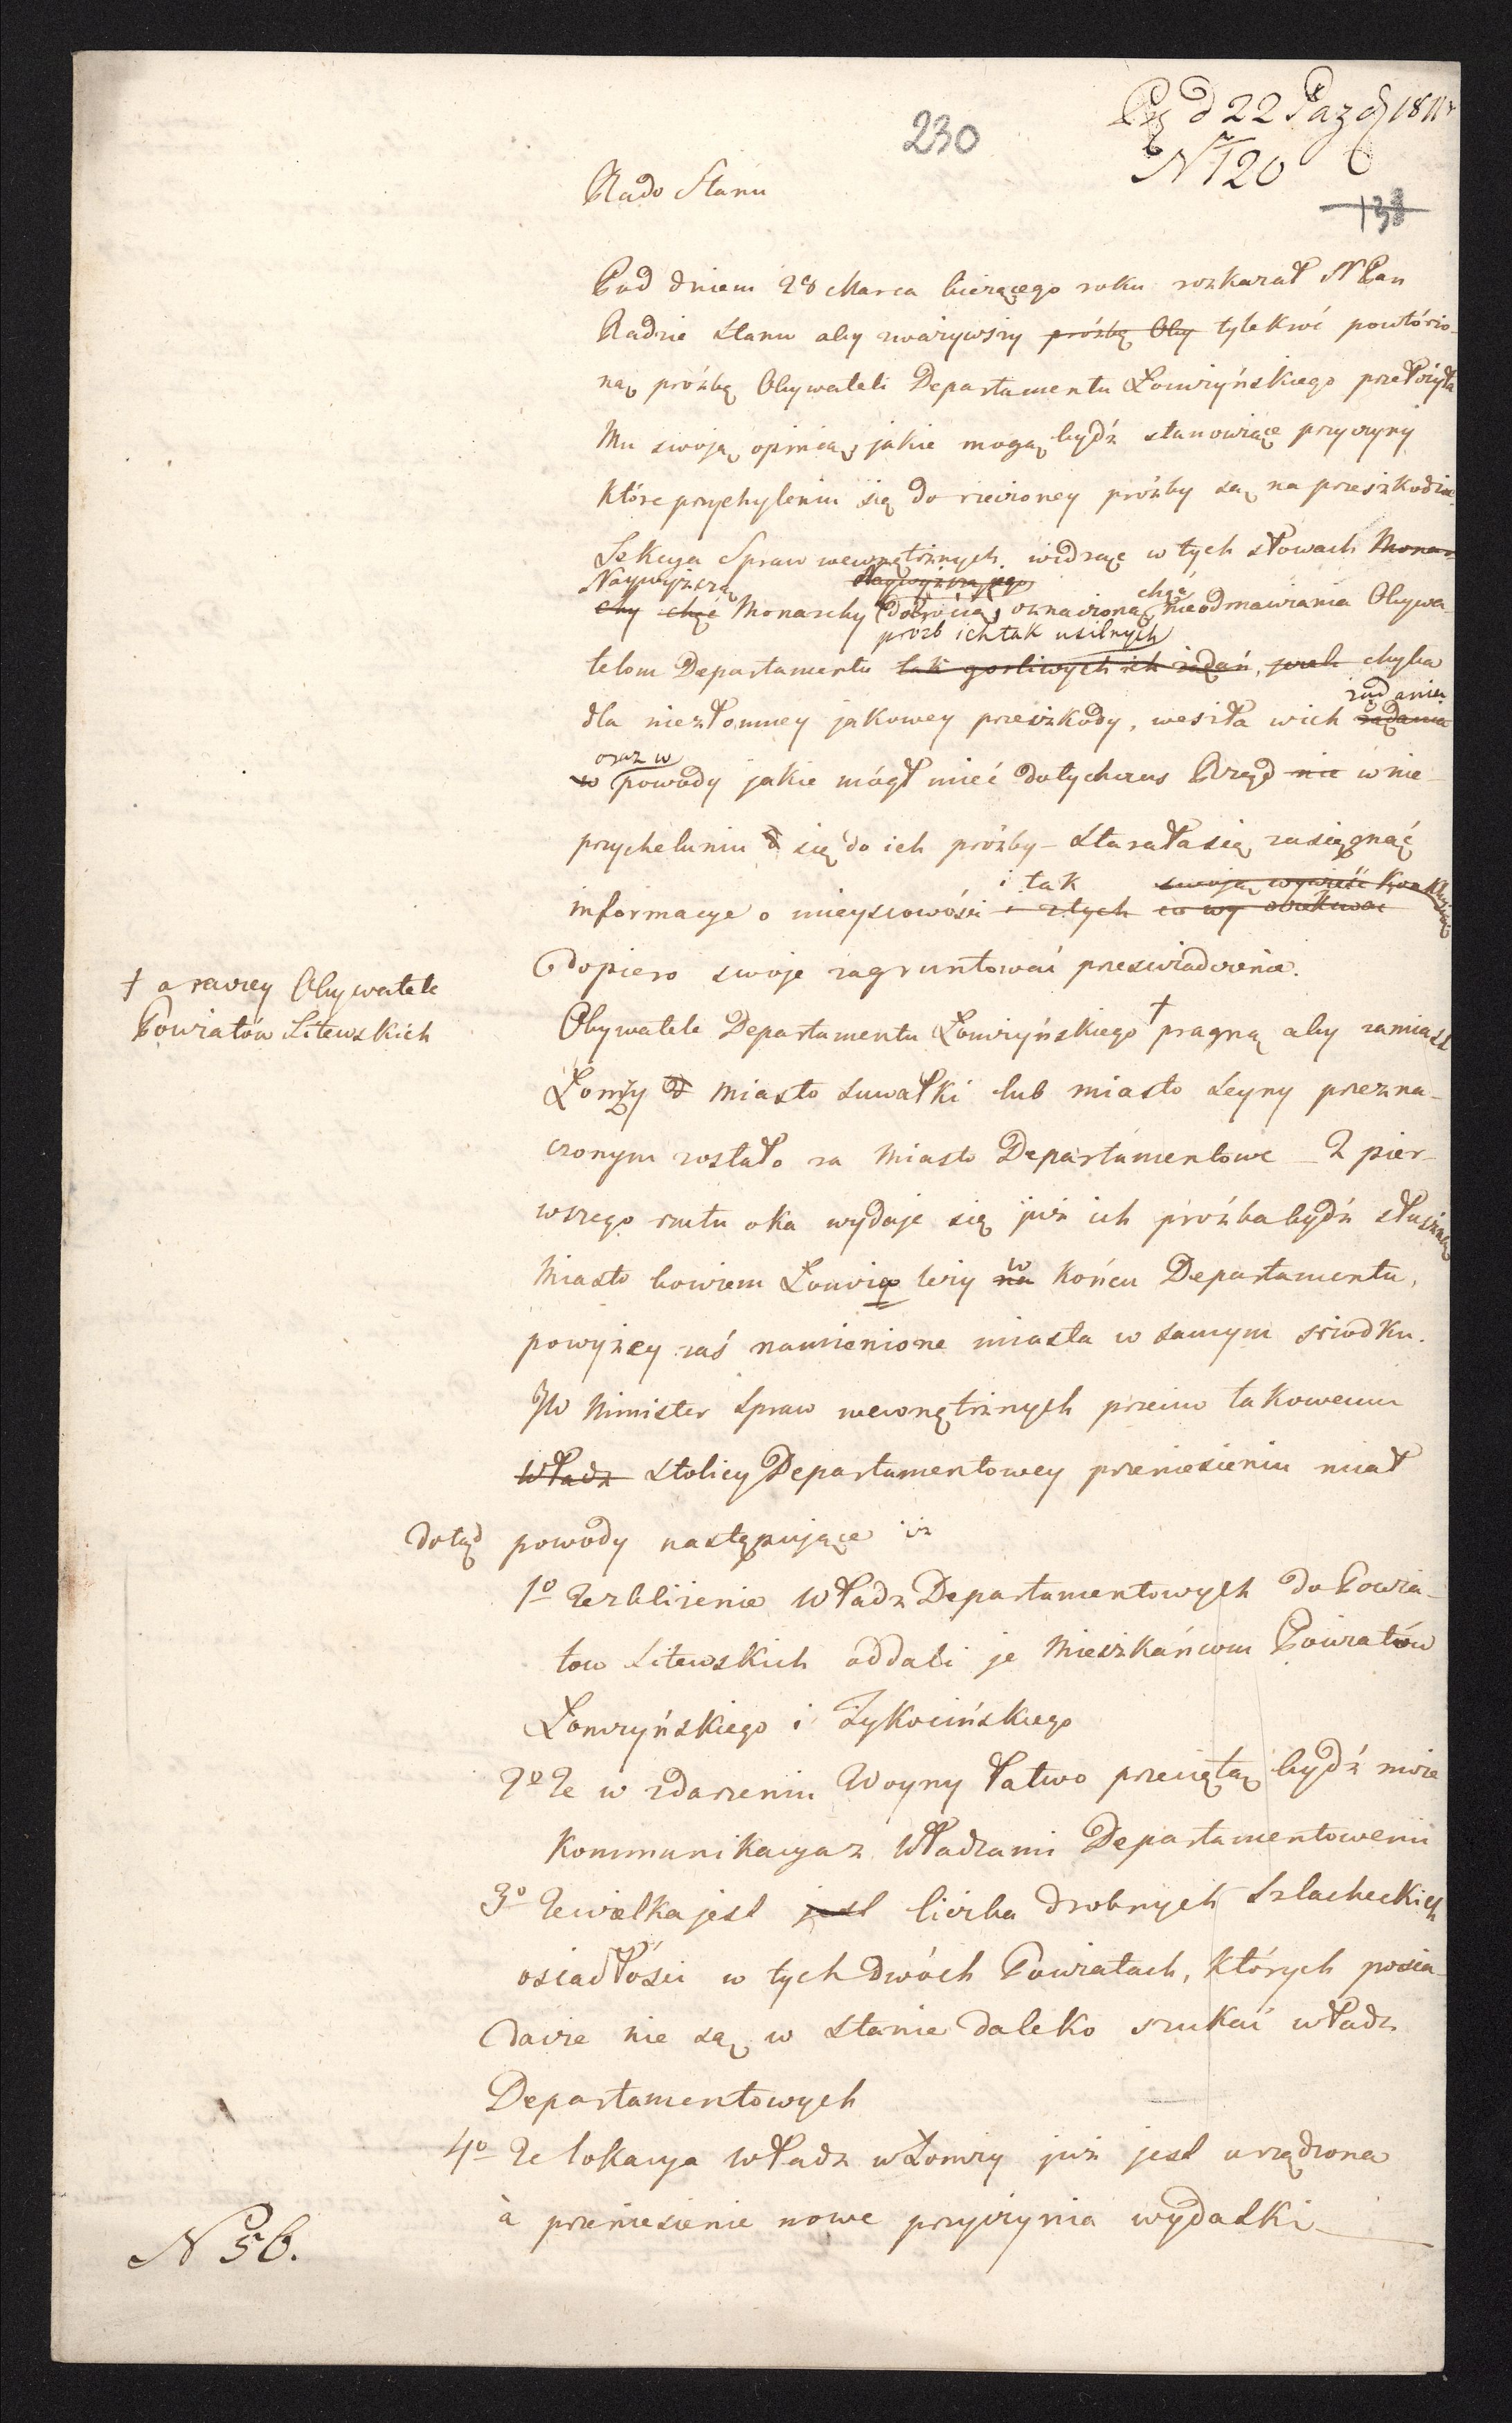 230
d 22 Paz 1811
N 120
133
Rado Stanu
Pod dniem 28 Marca bierzącego roku rozkazał N Pan
Radzie Stanu aby zważywszy próźbę Oby tylekroć powtórzo-
ną próźbę Obywateli Departamentu Łomżyńskiego przełożyła
Mu swoją opinią, jakie mogą bydź stanowiące przyczyny
które przychyleniu się do rzeczoney próźby są na przeszkodzie.
Sekcya Spraw wewnętrznych widząc w tych słowach Monar
Naywyższą
chy chęć Monarchy Dobrocią oznaczoną chęć nieodmawiania Obywa-
próźb ich tak usilnych
telom Departamentu tak gorliwych ich żądań, chyba
żądanie
dla niezłomney jakowey przeszkody, weszła w ich żądania
oraz w
w powody jakie mógł mieć dotychczas Rząd nie w nie-
przycheleniu d się do ich próźby – starała się zasięgnąć
i tak swoją wywieść konkluzyą
informacye o mieyscowości i z tych co wy
dopiero swoje zagruntować przeswiadczenie.
† a raczey Obywatele
Powiatów Litewskich
Obywatele Departamentu Łomżyńskiego † pragną aby zamiast
Łomży d miasto Suwałki lub miasto Seyny przezna-
czonym zostało za Miasto Departamentowe – Z pier-
wszego rzutu oka wydaje się już ich próźba bydź słuszną
Miasto bowiem Łomża leży na w końcu Departamentu,
powyżey zaś namienione miasta w samym srzodku.
JW Minister Spraw wewnętrznych przeciw takowemu
Władz stolicy Departamentowey przeniesieniu miał
dotąd powody następujące iż
1o Że zbliżenie Władz Departamentowych do Powia-
tow Litewskich oddali je Mieszkańcom Powiatów
Łomżyńskiego i Tykocińskiego
2o Że w zdarzeniu Woyny łatwo przeciętą bydź może
Kommunikacya z Władzami Departamentowemi
3o Że wielka jest jest liczba drobnych Szlacheckich
osiadłości w tych dwóch Powiatach, których posia-
dacze nie są w stanie daleko szukać władz
Departamentowych
4o Że lokacya Władz w Łomży już jest urządzona
à przeniesienie nowe przyczynia wydatki
N 56.